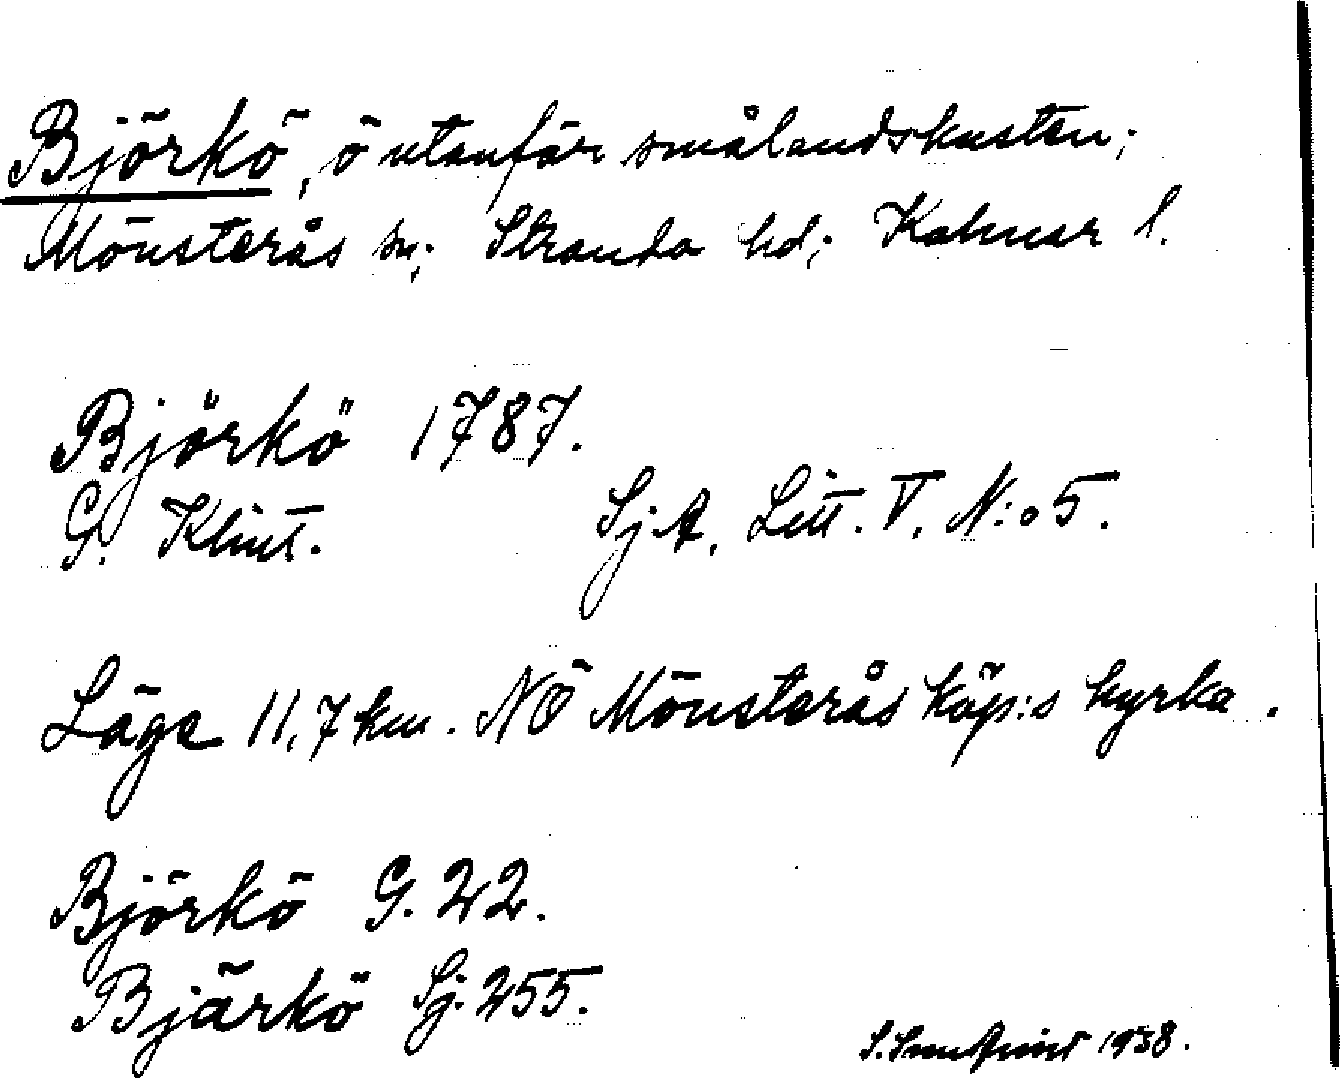 Björkö, ö utanför smålandskusten;
Mönsterås sn; Stranda hd; Kalmar l.
Björkö 1787.
G. Klint. Sj.A. Litt. V. N:o 5.
Läge 11,7 km. NÖ Mönsterås köp:s kyrka.
Björkö G. 22.
Bjärkö Sj. 255.
S. 1938.